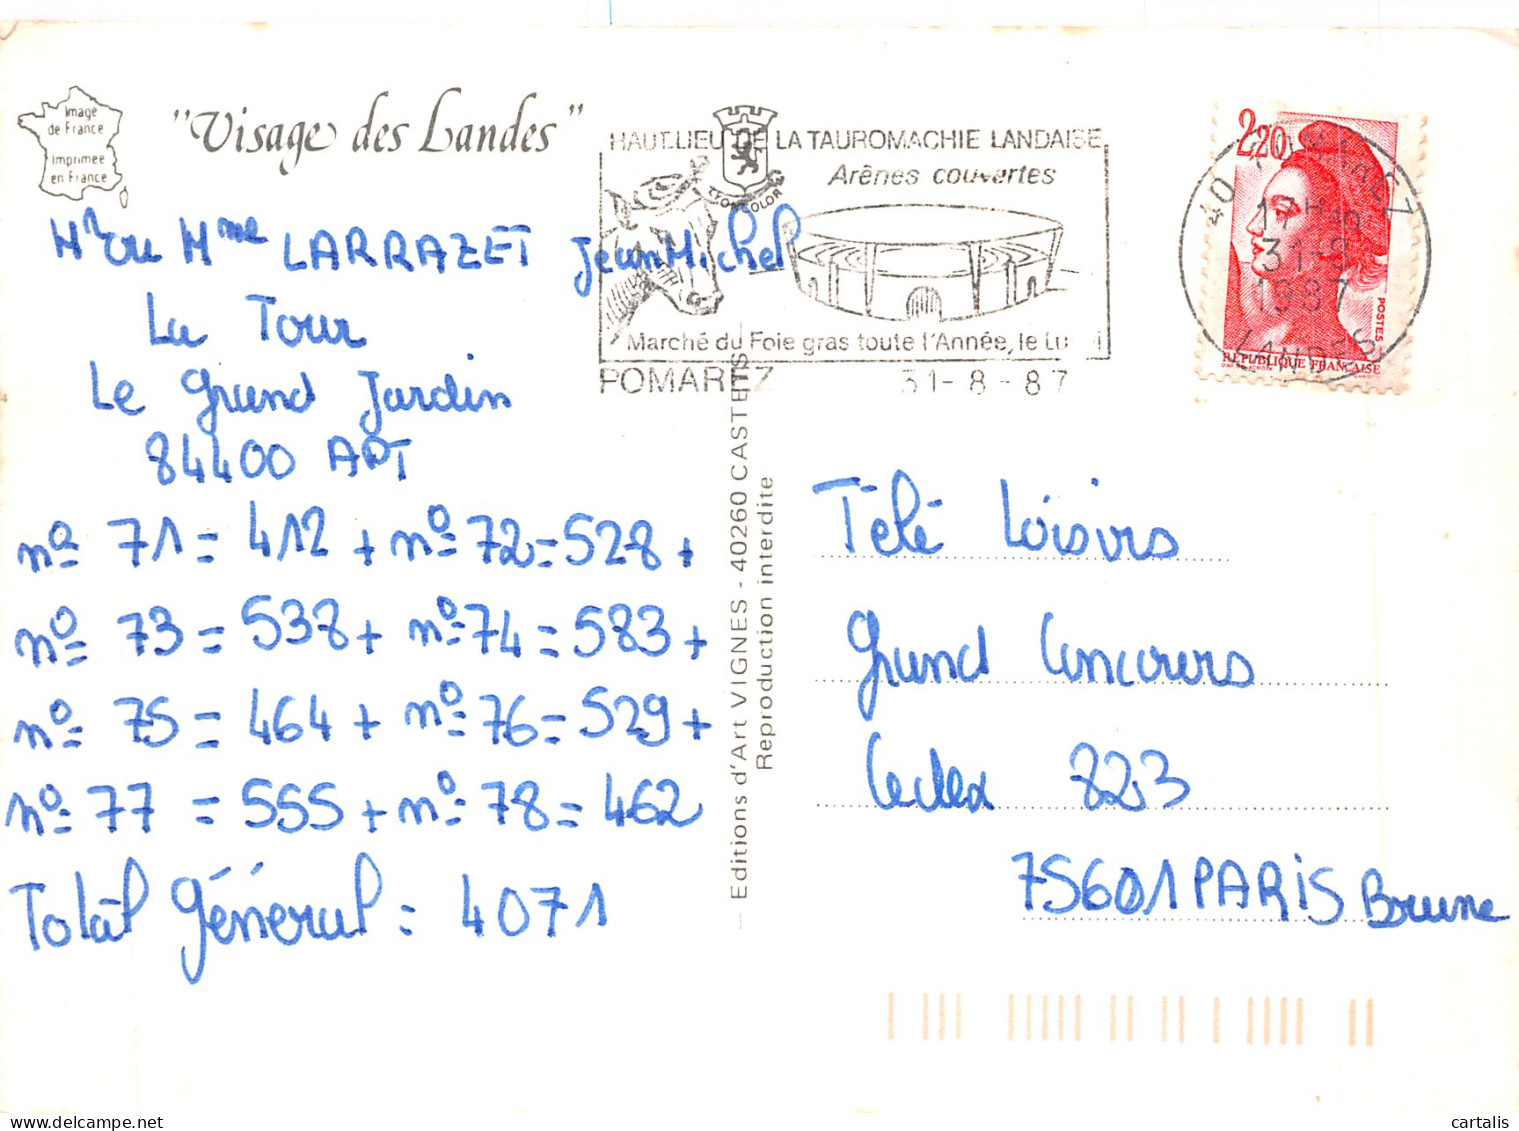 Image
de France
Imprimée
en France
"Visage des Landes"
HAUT-LIEU DE LA TAUROMACHIE LANDAISE
Arènes couvertes
Marché du Foie gras toute l'Année, le Lu
POMAREZ 31-8-87
2,20
40 POMAREZ
17H
31-8
1987
LANDES
POSTES
REPUBLIQUE FRANÇAISE
Mr ou Mme LARRAZET Jean Michel
La Tour
Le Grand Jardin
84400 APT
nº 71 = 412 + nº 72 = 528 +
nº 73 = 538 + nº 74 = 583 +
nº 75 = 464 + nº 76 = 529 +
nº 77 = 555 + nº 78 = 462
Total Général : 4071
Editions d'Art VIGNES - 40260 CASTETS
Reproduction interdite
Télé Loisirs
Grand Concours
Cedex 823
75601 PARIS Brune
delcampe.net
cartalis